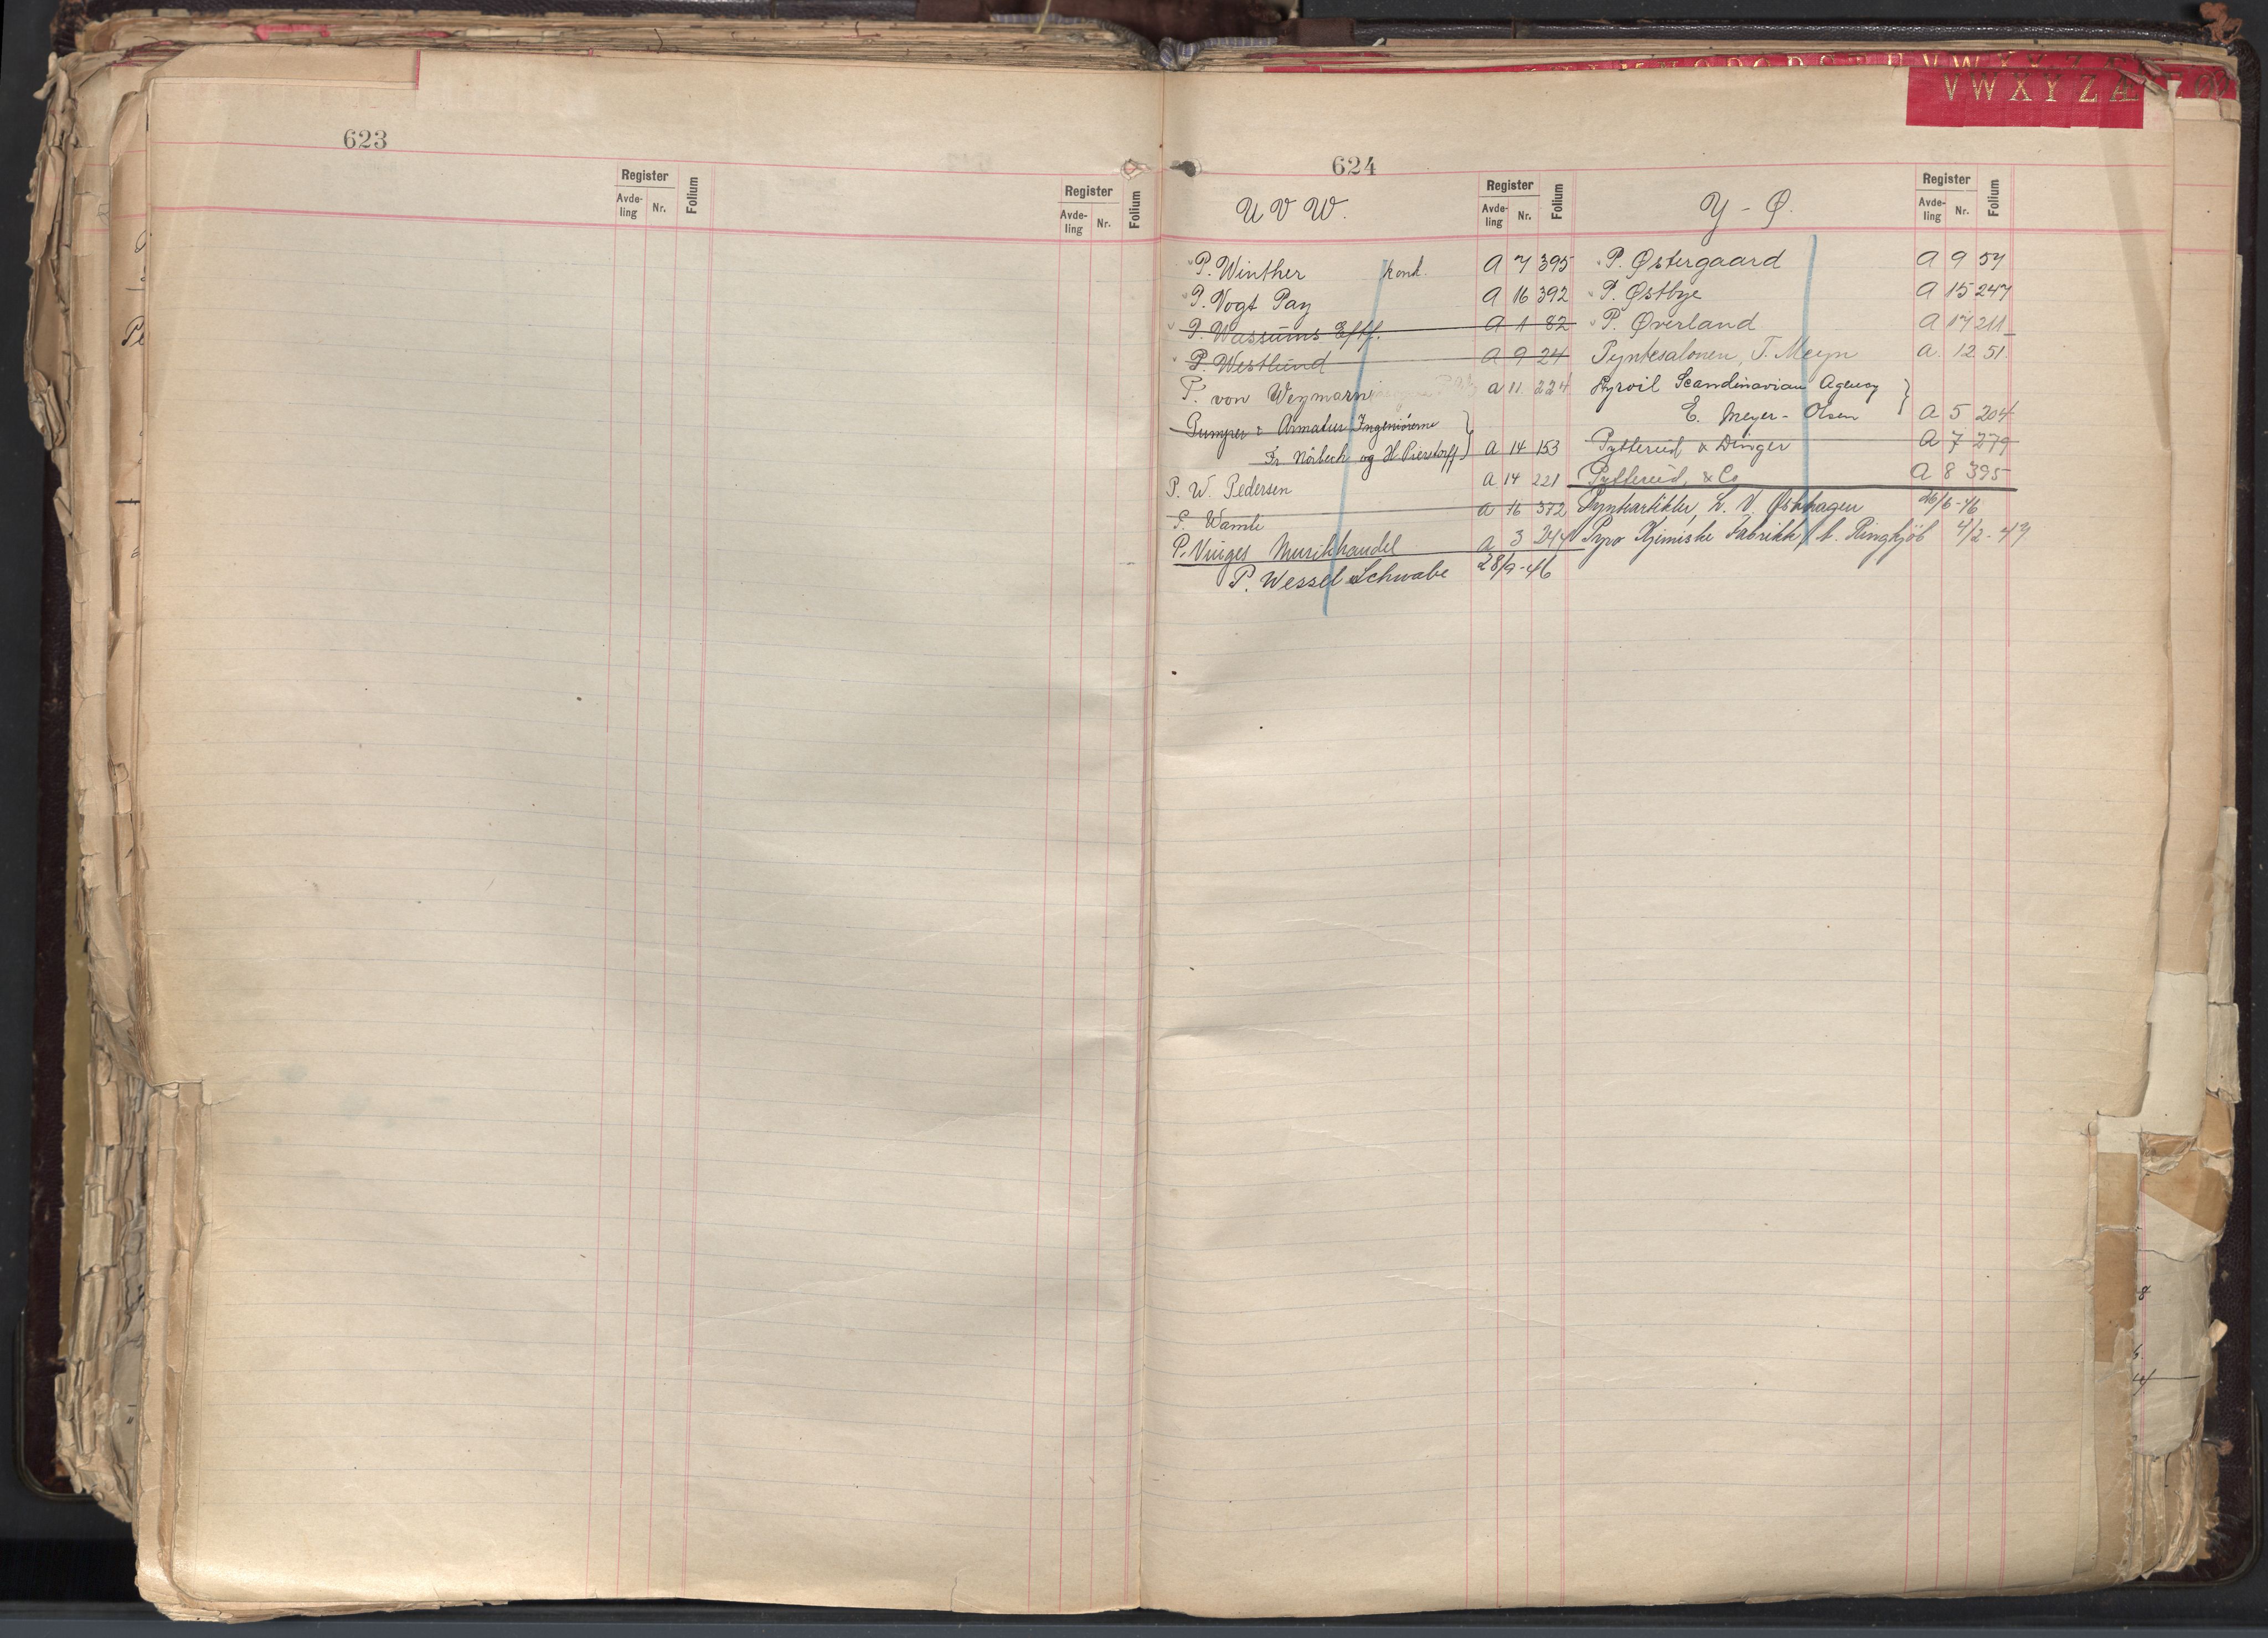 V W X Y Z Æ
623
Register
Avde-
ling
Nr.
Folium
Register
Avde-
ling
Nr.
Folium
624
U V W.
Register
Avde-
ling
Nr.
Folium
P. Winther kond. A 7 395
P. Vogt Pay A 16 392
P. Wassums Eftf. A 1 82
P. Westlund A 9 24
P. von Weymarn A 11 224
Pumper & Armatur Ingeniörerne
Fr Nörbech og H Pierstorff A 14 153
P. W. Pedersen A 14 221
P. Wamli A 16 372
P. Vinges Musikkhandel A 3 244
P. Wessel Schwabe 28/9-46
Y - Ø.
Register
Avde-
ling
Nr.
Folium
P. Østergaard A 9 57
P. Østbye A 15 247
P. Øverland A 17 211
Pyntesalonen, T. Meyn A. 12 51.
Pyroil Scandinavian Agency
E. Meyer-Olsen A 5 204
Pytterud & Dinger A 7 279
Pytterud, & Co A 8 395
Pyntartikler, L. V. Østhagen 26/6-46
Pyro Kjemiske Fabrikk, Ringkjöb 4/2-47